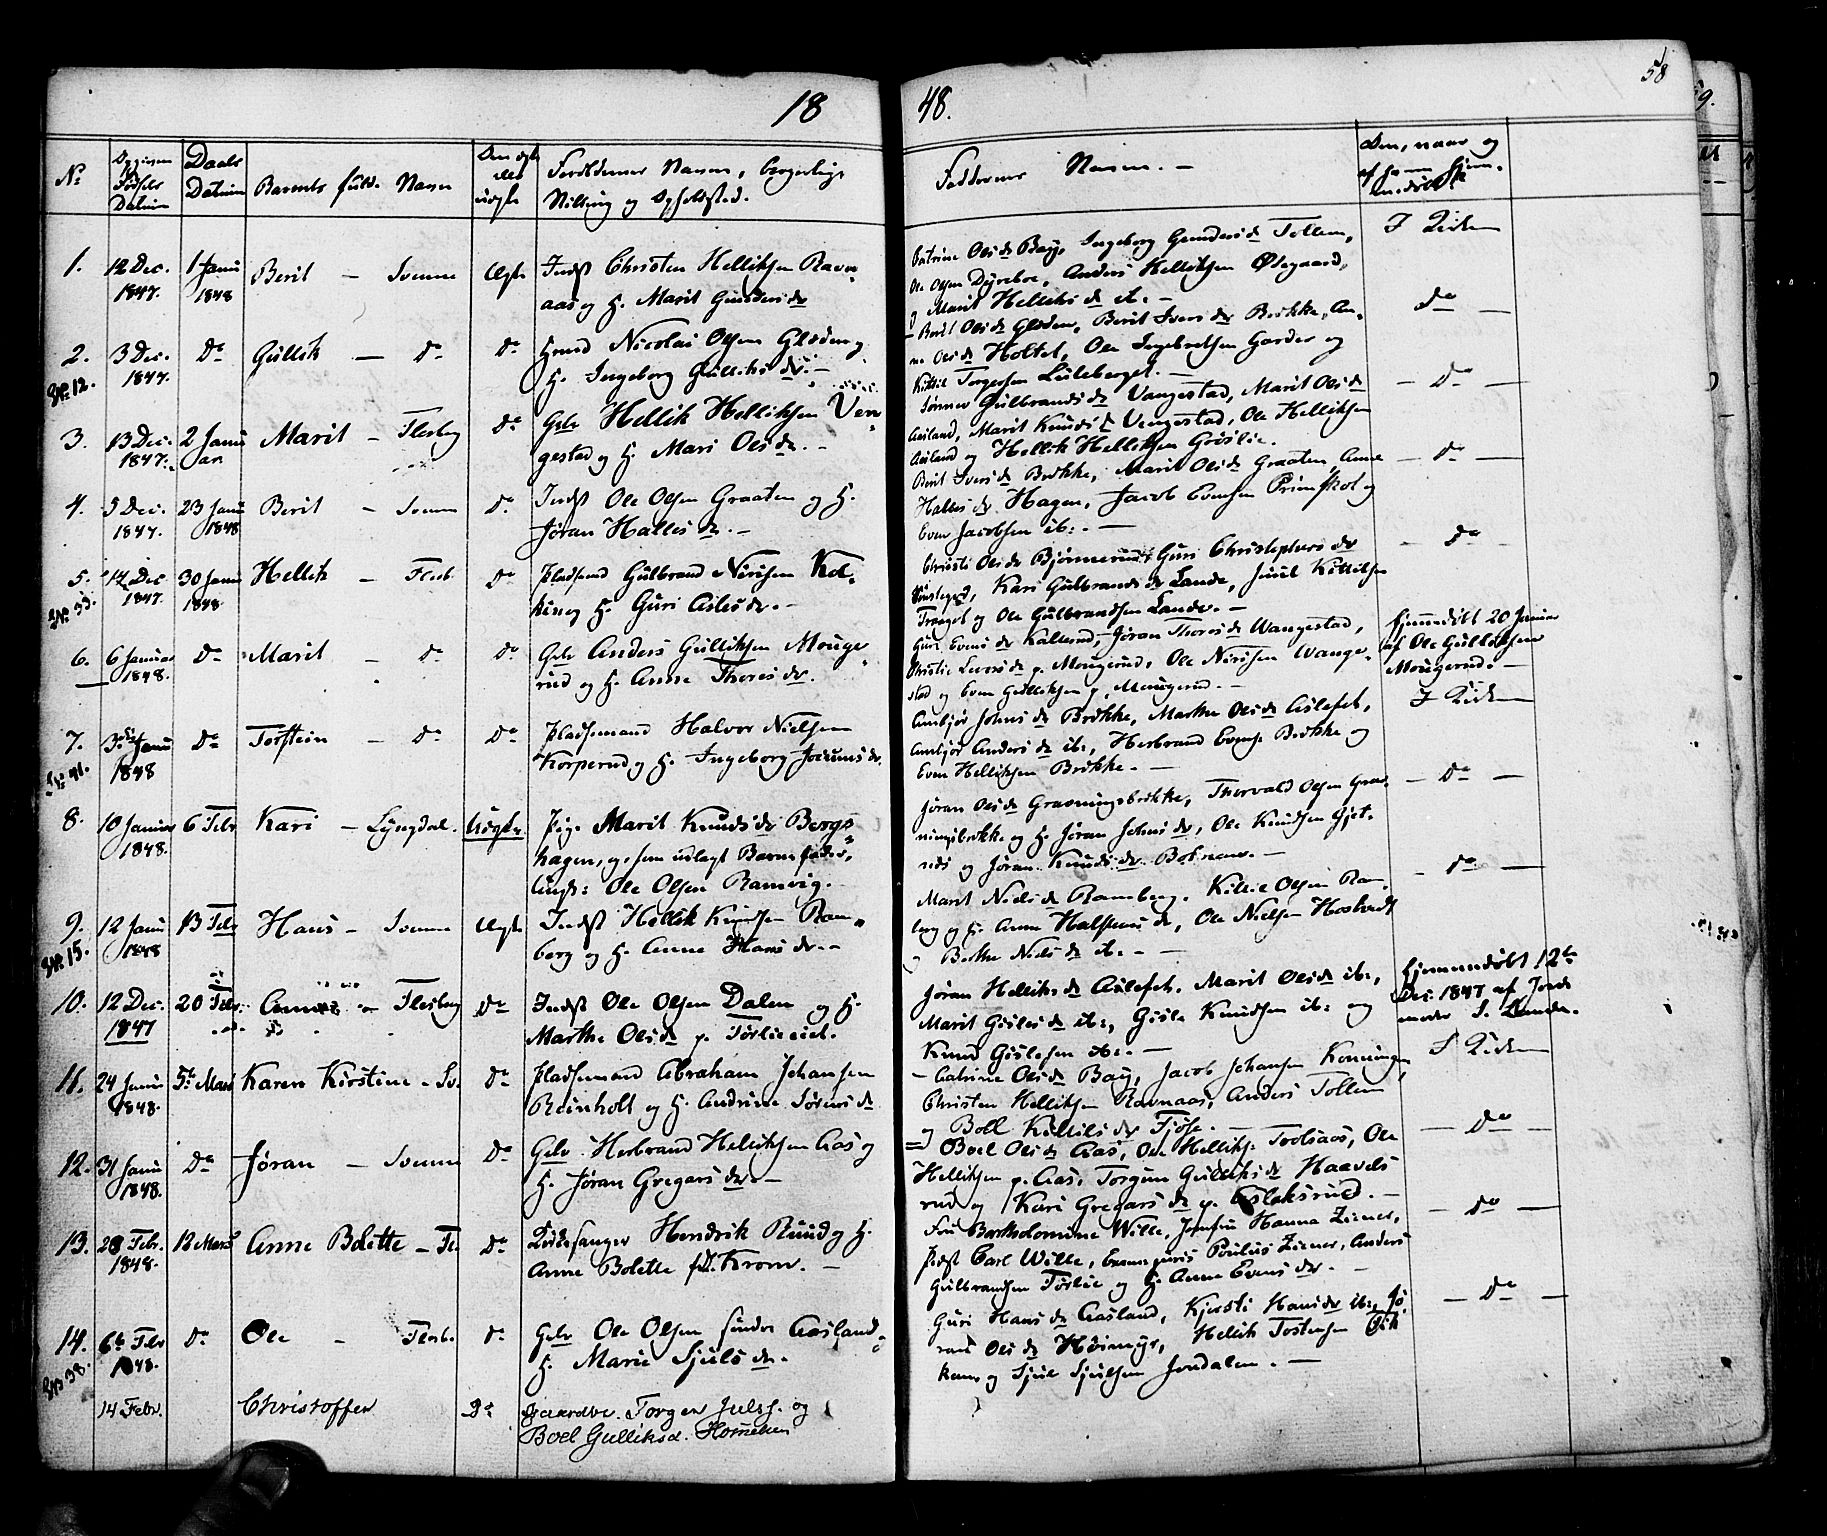 18
48.
58
59.
No
Opgiven Fødsels Datum
Daabs Datum
Barnets fulde Navn
Om ægte eller uægte
Forældrenes Navne, borgerlige Stilling og Opholdsted.
Faddernes Navne. —
Om, naar og af hvem hjemmedøbt
1. 12 Dec. 1847. 1 Janu 1848 Berit — Svenne Ægte
Indst Christen Helliksen Ravn
aas og H. Marit Gundersdr
Catrine Olsdr Bay, Ingeborg Gundersdr Tollen,
Ole Olsen Dyreboe, Anders Helliksen Østgaard,
og Marit Helliksdr ib. —
I Kirken
2. 3 Dec. 1847. Do Gullik — Do Do
Grmd Nicolai Olsen Gloden og
H. Ingeborg Gulliksdr. —
No 12.
Berit Olsdr Gloden, Berit Iversdr Brække, An-
ne Olsdr Holtet, Ole Ingebretsen Garder og
Kittil Torgersen Lileberget. —
Do
3. 13 Dec. 1847. 2 Janu ar Marit — Flesberg Do
Gelv Hellik Helliksen Ven
gestad og H. Mari Olsdr. —
Sønnev Gulbrandsdr Vangestad, Marit Olsdr
Aasland, Marit Knudsdr Vengestad, Ole Helliksen
Aasland og Hellik Helliksen Grøslie.
— Do —
4. 5 Dec. 1847. 23 Janu 1848 Berit — Svenne Do
Indst Ole Olsen Graaten og H.
Jøran Hallesdr. —
Berit Iversdr Brække, Marit Olsdr Graaten, Anne
Hallesdr Hagen, Jacob Evensen Primskot og
Even Jacobsen ib: —
— Do —
5. 12 Dec 1847. 30 Janu 1848. Hellik — Flesb Do
Pladsmd Gulbrand Nirisen Kol-
kin og H. Guri Aslesdr. —
No 33.
Christi Olsdr Bjørnerud, Guri Christophersdr
Kari Gulbrandsdr Lande, Juul Kittilsen
Traaget og Ole Gulbrandsen Lande. —
— Do —
6. 6 Januar 1848. Do Marit — Do Do
Gelv Anders Gulliksen Mouge-
rud og H. Anne Thoresdr.
Guri Evensdr Kallerud, Jøran Thoresdr Wangestad,
Christie Leversdr p. Mougerud, Ole Nirisen Wange-
stad og Even Gulliksen p. Mougerud. —
Hjemmedøbt 20 Januar
af Ole Gulliksen
Mougerud. —
7. 3 Janu 1848 Do Torstein — Do Do
Pladsemand Halvor Nielsen
Korperud og H. Ingeborg Jocumsdr.
No 41.
Ambjør Johnsdr Brække, Marthe Olsdr Aslefet,
Ambjør Andersdr ib:, Herbrand Evens. Brække og
Even Helliksen Brække. —
I Kirken
8. 10 Januar 1848. 6 Febr Kari — Lyngdal. Uægte
Pige Marit Knudsdr Bergs
hagen, og som udlagt Barnefader,
Ungk: Ole Olsen Ramvig.
Jøran Olsdr Gravningsbrække, Thorvald Olsen Grav
ningsbrække og H. Jøran Johnsdr, Ole Knudsen Gjet-
reds og Jøran Knudsdr —
— Do —
9. 12 Janu 1848 13 Febr Hans — Svenne Ægte
Indst Hellik Knudsen Ram-
berg og H. Anne Hansdr. —
No 15.
Marit Nielsdr Ramberg. Kittil Olsen Ram-
berg og H. Anne Halstensdr, Ole Nielsen Hostvedt
og Berthe Nielsdr ib: —
— Do —
10. 12 Dec. 1847 20 Febr. Anne — Flesberg Do
Indst Ole Olsen Dalen og H.
Marthe Olsdr p. Tørlieeiet.
Jøran Helliksdr Aslefet. Marit Olsdr ib:,
Marit Gislesdr ib:, Gisle Knudsen ib: og
Knud Gislesen ib:. —
Hjemmedøbt 12te
Dec. 1847 af Jorde
moder S. Lunde.
11. 24 Janu 1848. 5te Mars Karen Kirstine — Sv. Do
Pladsemand Abraham Johansen
Reinholt og H. Andrine Sørensdr
— Catrine Olsdr Bay, Jacob Johansen Konningen,
Christen Helliksen Ravnaas, Anders Tollen
og Boel Kittilsdr Fjøse. —
I Kirken
12. 31 Janu 1848. Do Jøran — Svenne Do
Gelv. Herbrand Helliksen Aas og
H. Jøran Gregersdr. —
Boel Olsdr Aas, Ole Helliks. Trolsaas, Ole
Helliksen p. Aas, Torgun Gulliksdr Haavels
rud og Kari Gregarsdr p. Aslaksrud. —
— Do —
13. 28 Febr. 1848. 12 Mars Anne Bolette — Fl. Do
Kirkesanger Hendrik Ruud og H.
Anne Bolette fød. Krom. —
Fru Bartholomine Wille, Jomfru Hanna Ziener,
Præst Carl Wille, Exam juris Poulus Ziener, Anders
Gulbrandsen Tørlie og H. Anne Evensdr. —
— Do —
14. 6te Febr 1848. Do Ole — Flesb. Do
Gelv Ole Olsen søndre Aasland
H. Marie Sjulsdr.
No 38.
Guri Hansdr Aasland, Kjersti Hansdr ib:, Jø-
ran Olsdr Høimyr, Hellik Tostensen
og Sjul Sjulsen Jondalen. —
— Do —
14 Febr. Christoffer Do
Gaardbr. Torger Julss. og
Boel Gulliksd.